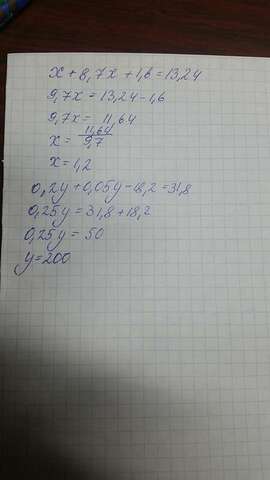 x + 8,7x + 1,6 = 13,24
9,7x = 13,24 - 1,6
9,7x = 11,64
x = 11,64/9,7
x = 1,2
0,2y + 0,05y - 18,2 = 31,8
0,25y = 31,8 + 18,2
0,25y = 50
y = 200